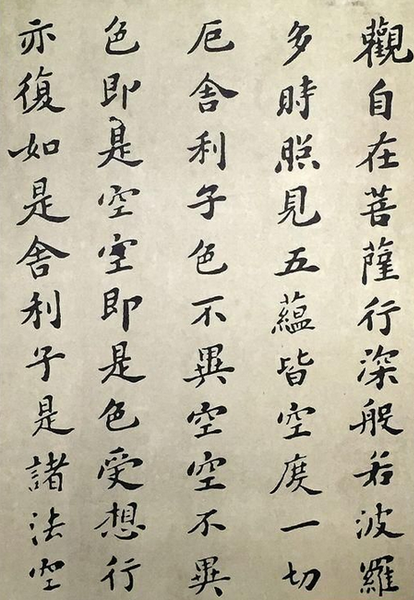 觀自在菩薩行深般若波羅
多時照見五蘊皆空度一切
厄舍利子色不異空空不異
色即是空空即是色受想行
亦復如是舍利子是諸法空